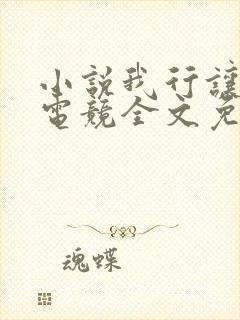 小説我行讓
電競全文免
魂蝶